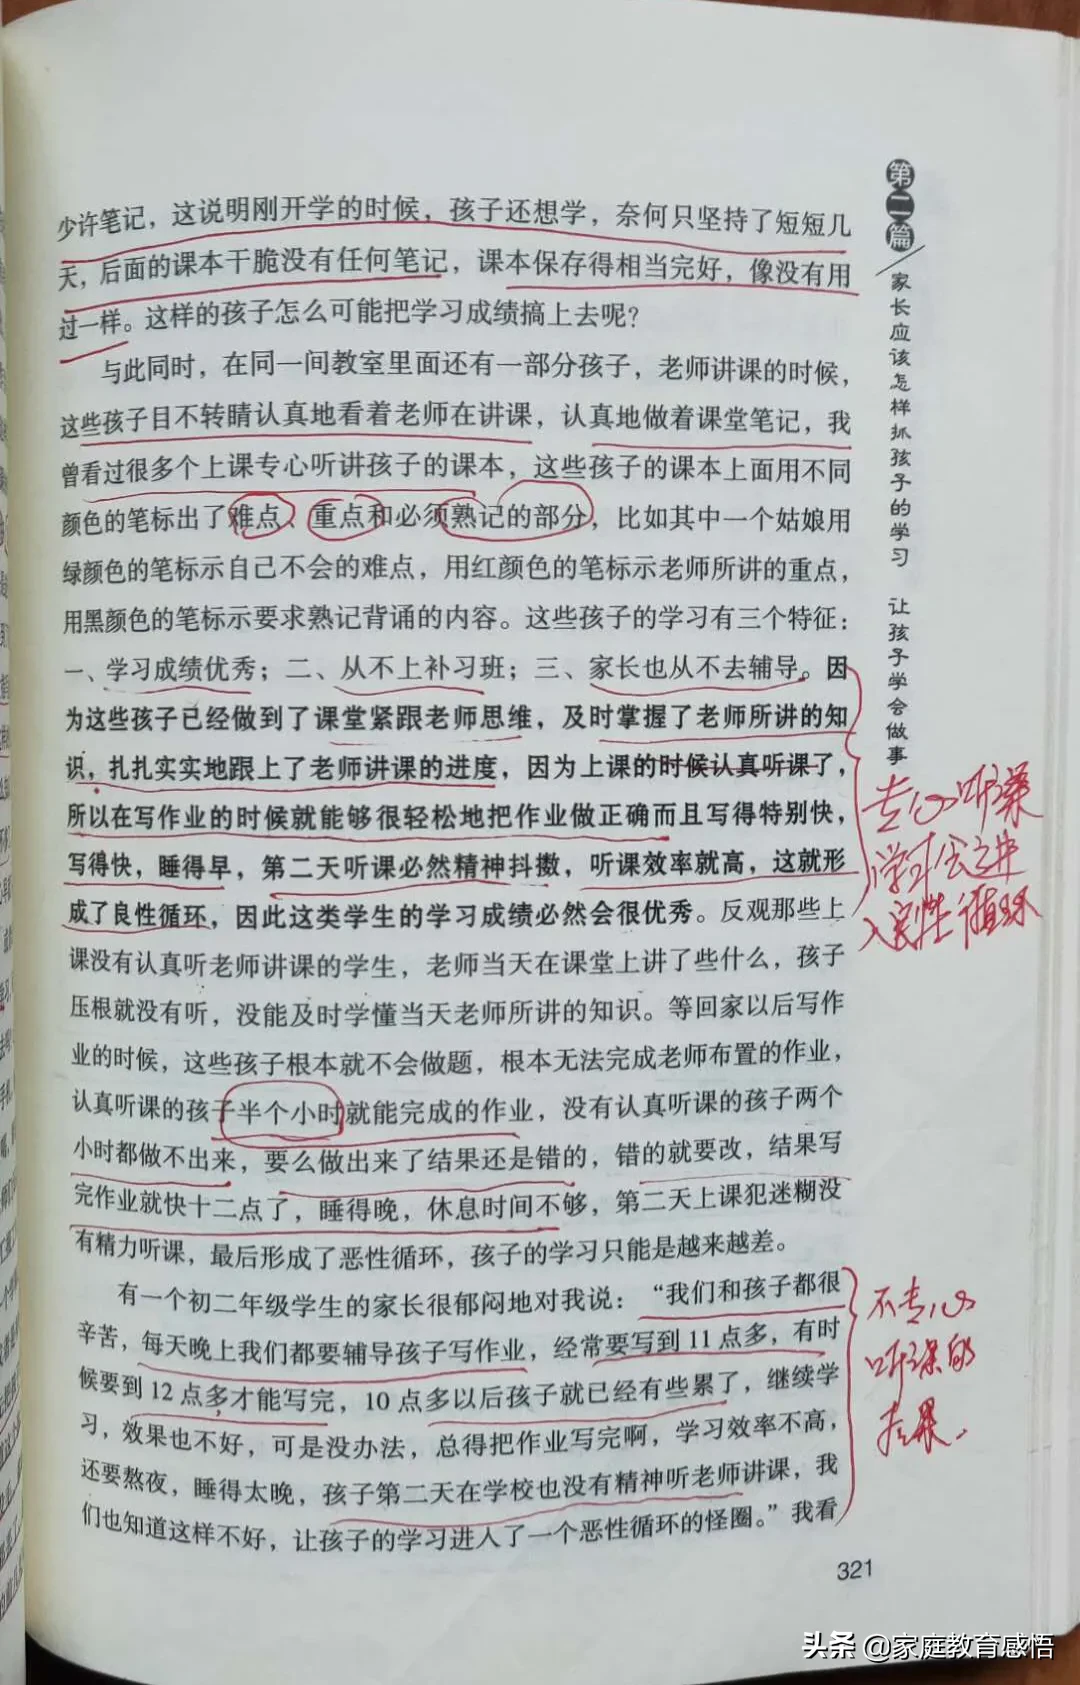 少许笔记，这说明刚开学的时候，孩子还想学，奈何只坚持了短短几
天，后面的课本干脆没有任何笔记，课本保存得相当完好，像没有用
过一样。这样的孩子怎么可能把学习成绩搞上去呢？
与此同时，在同一间教室里面还有一部分孩子，老师讲课的时候，
这些孩子目不转睛认真地看着老师在讲课，认真地做着课堂笔记，我
曾看过很多个上课专心听讲孩子的课本，这些孩子的课本上面用不同
颜色的笔标出了难点、重点和必须熟记的部分，比如其中一个姑娘用
绿颜色的笔标示自己不会的难点，用红颜色的笔标示老师所讲的重点，
用黑颜色的笔标示要求熟记背诵的内容。这些孩子的学习有三个特征：
一、学习成绩优秀；二、从不上补习班；三、家长也从不去辅导。因
为这些孩子已经做到了课堂紧跟老师思维，及时掌握了老师所讲的知
识，扎扎实实地跟上了老师讲课的进度，因为上课的时候认真听课了，
所以在写作业的时候就能够很轻松地把作业做正确而且写得特别快，
写得快，睡得早，第二天听课必然精神抖擞，听课效率就高，这就形
成了良性循环，因此这类学生的学习成绩必然会很优秀。反观那些上
课没有认真听老师讲课的学生，老师当天在课堂上讲了些什么，孩子
压根就没有听，没能及时学懂当天老师所讲的知识。等回家以后写作
业的时候，这些孩子根本就不会做题，根本无法完成老师布置的作业，
认真听课的孩子半个小时就能完成的作业，没有认真听课的孩子两个
小时都做不出来，要么做出来了结果还是错的，错的就要改，结果写
完作业就快十二点了，睡得晚，休息时间不够，第二天上课犯迷糊没
有精力听课，最后形成了恶性循环，孩子的学习只能是越来越差。
有一个初二年级学生的家长很郁闷地对我说：“我们和孩子都很
辛苦，每天晚上我们都要辅导孩子写作业，经常要写到 11 点多，有时
候要到 12 点多才能写完，10 点多以后孩子就已经有些累了，继续学
习，效果也不好，可是没办法，总得把作业写完啊，学习效率不高，
还要熬夜，睡得太晚，孩子第二天在学校也没有精神听老师讲课，我
们也知道这样不好，让孩子的学习进入了一个恶性循环的怪圈。”我看
321
第二篇
家长应该怎样抓孩子的学习 让孩子学会做事
专心听课
学习会进
入良性循环
不专心
听课的
后果.
头条 @家庭教育感悟